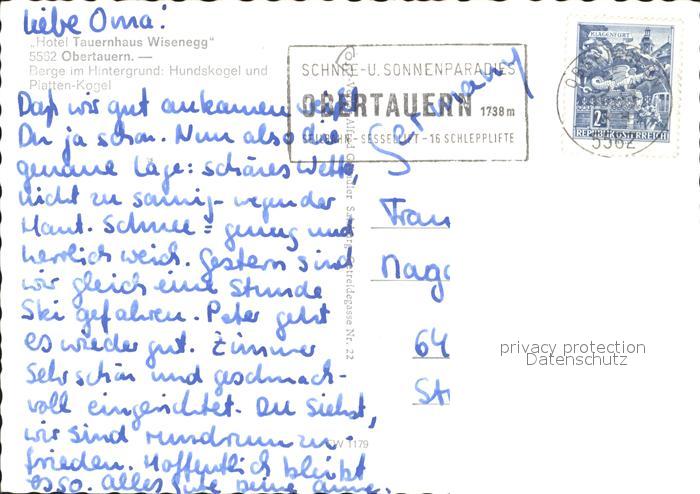 Liebe Oma!
„Hotel Tauernhaus Wisenegg"
5562 Obertauern. —
Berge im Hintergrund: Hundskogel und
Platten-Kogel
Daß wir gut ankamen weißt
Du ja schon. Nun also die
genaue Lage: schönes Wetter,
nicht zu sonnig - wegen der
Haut. Schnee = genug und
herrlich weich. Gestern sind
wir gleich eine Stunde
Ski gefahren. Peter geht
es wieder gut. Zimmer
sehr schön und geschmack-
voll eingerichtet. Du siehst,
wir sind rundrum zu-
frieden. Hoffentlich bleibt
es so. alles Gute deine
SCHNEE-U. SONNENPARADIES
OBERTAUERN 1738m
SESSELLIFT - 16 SCHLEPPLIFTE
Germany
KLAGENFURT
2S
REPUBLIK ÖSTERREICH
5562
Nr. 22
1179
Frau
64
privacy protection
Datenschutz